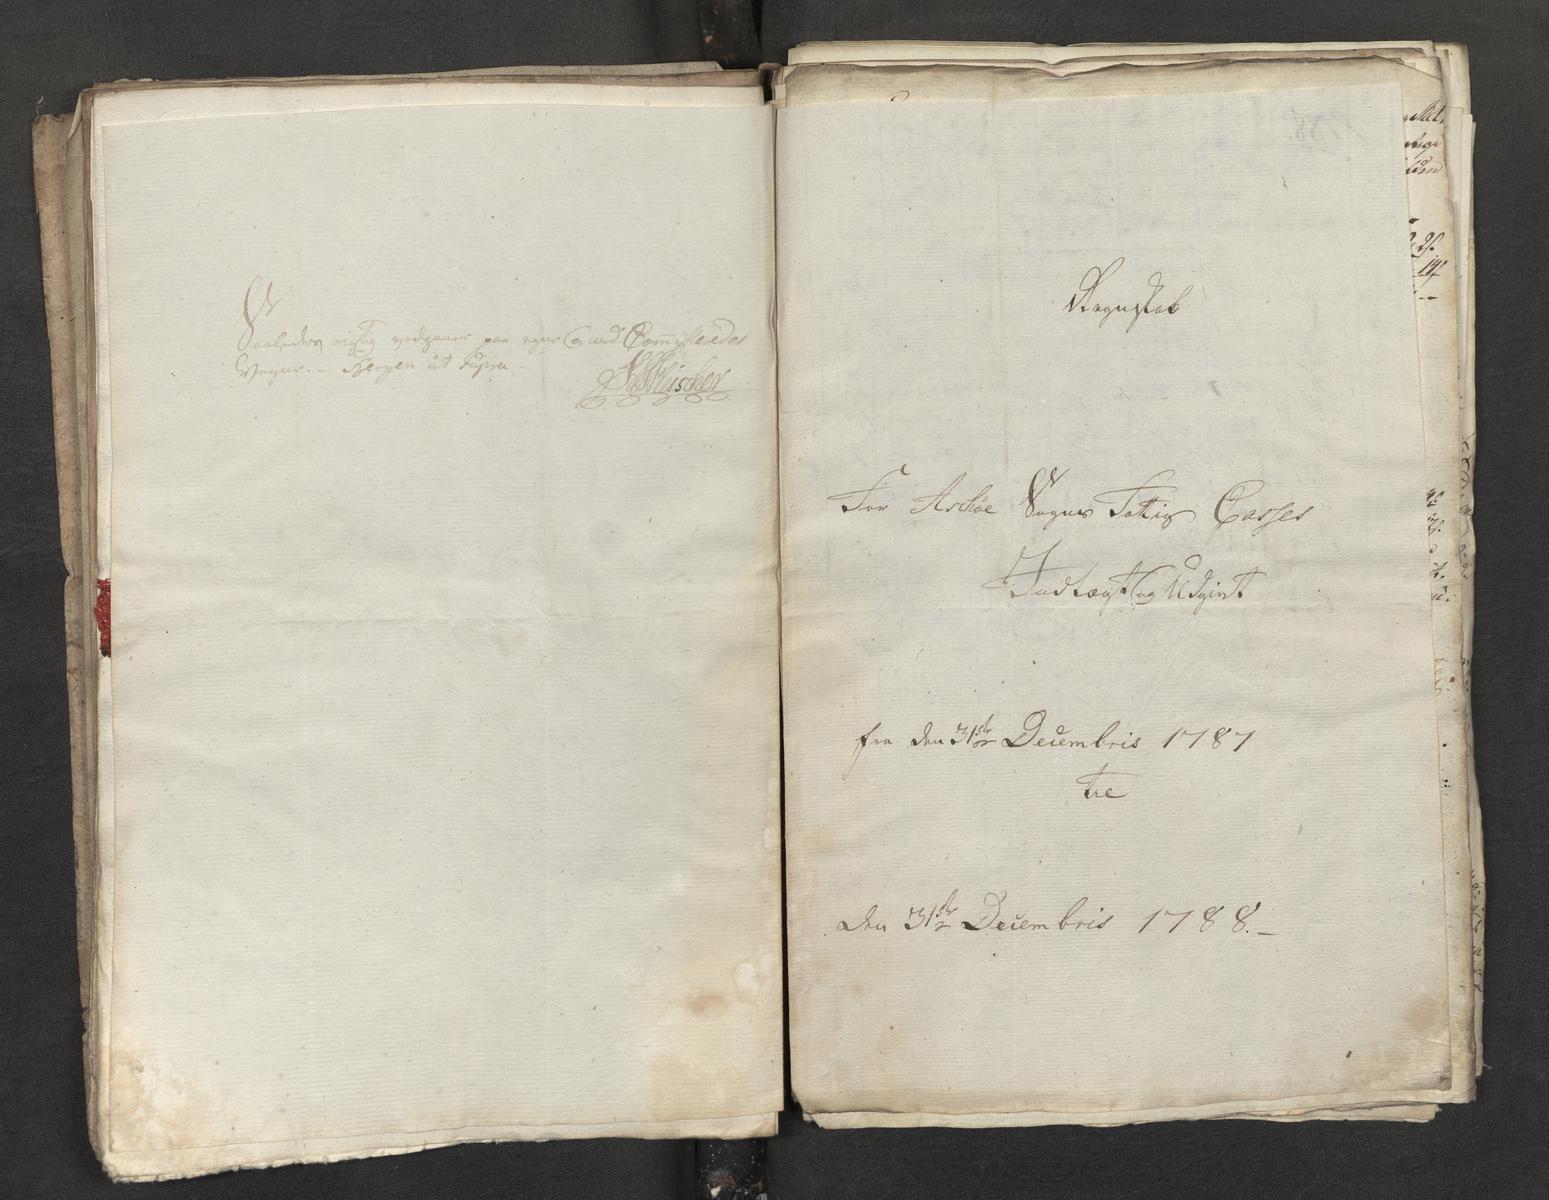 Saaledes rigtig vedgaaer paa egne og med Committeredes
Vegne. - Bergen ut supra.
Fleischer
Regnskab
For Askøe Sogns Fattig Casses
Indtægt og Udgivt
fra den 31te Decembris 1787
til
den 31te Decembris 1788.